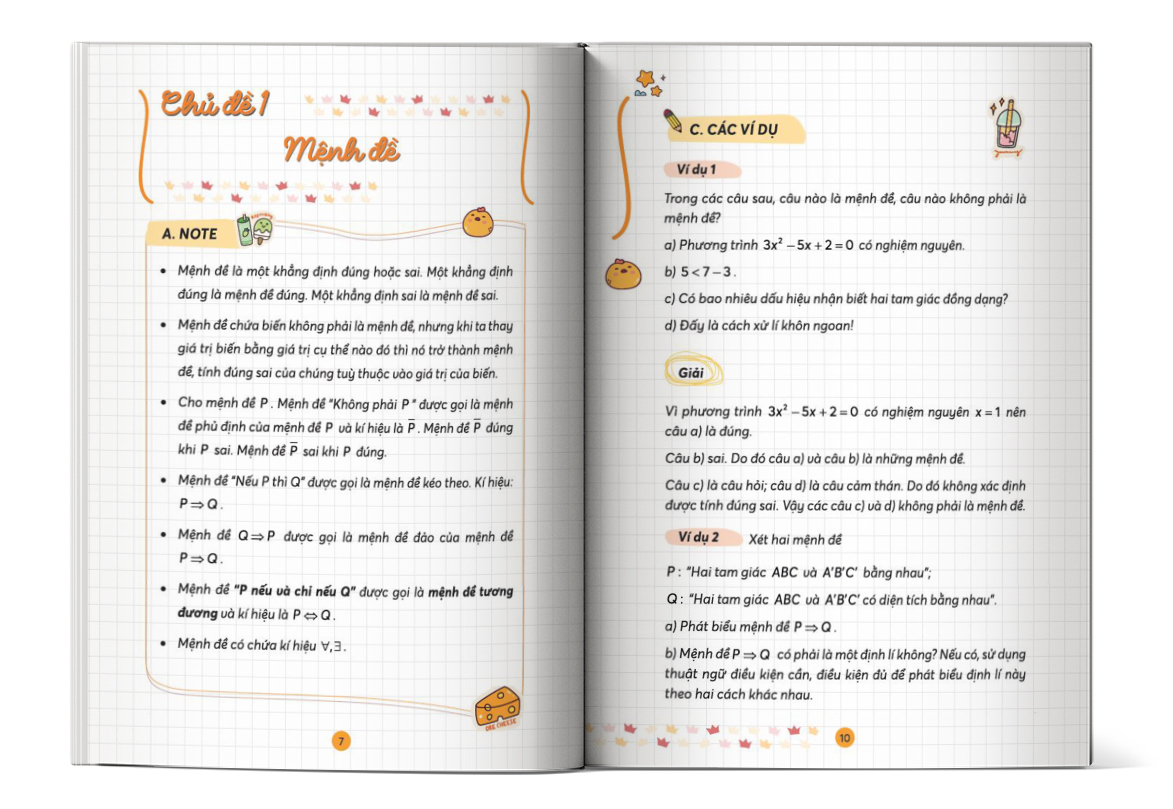 Chủ đề 1
Mệnh đề
A. NOTE
• Mệnh đề là một khẳng định đúng hoặc sai. Một khẳng định
đúng là mệnh đề đúng. Một khẳng định sai là mệnh đề sai.
• Mệnh đề chứa biến không phải là mệnh đề, nhưng khi ta thay
giá trị biến bằng giá trị cụ thể nào đó thì nó trở thành mệnh
đề, tính đúng sai của chúng tuỳ thuộc vào giá trị của biến.
• Cho mệnh đề P . Mệnh đề "Không phải P " được gọi là mệnh
đề phủ định của mệnh đề P và kí hiệu là P̅ . Mệnh đề P̅ đúng
khi P sai. Mệnh đề P̅ sai khi P đúng.
• Mệnh đề "Nếu P thì Q" được gọi là mệnh đề kéo theo. Kí hiệu:
P ⇒ Q .
• Mệnh đề Q ⇒ P được gọi là mệnh đề đảo của mệnh đề
P ⇒ Q .
• Mệnh đề "P nếu và chỉ nếu Q" được gọi là mệnh đề tương
đương và kí hiệu là P ⇔ Q .
• Mệnh đề có chứa kí hiệu ∀,∃ .
ONE CHEESE
7
C. CÁC VÍ DỤ
Ví dụ 1
Trong các câu sau, câu nào là mệnh đề, câu nào không phải là
mệnh đề?
a) Phương trình 3x² − 5x + 2 = 0 có nghiệm nguyên.
b) 5 < 7 − 3 .
c) Có bao nhiêu dấu hiệu nhận biết hai tam giác đồng dạng?
d) Đấy là cách xử lí khôn ngoan!
Giải
Vì phương trình 3x² − 5x + 2 = 0 có nghiệm nguyên x = 1 nên
câu a) là đúng.
Câu b) sai. Do đó câu a) và câu b) là những mệnh đề.
Câu c) là câu hỏi; câu d) là câu cảm thán. Do đó không xác định
được tính đúng sai. Vậy các câu c) và d) không phải là mệnh đề.
Ví dụ 2 Xét hai mệnh đề
P : "Hai tam giác ABC và A'B'C' bằng nhau";
Q : "Hai tam giác ABC và A'B'C' có diện tích bằng nhau".
a) Phát biểu mệnh đề P ⇒ Q .
b) Mệnh đề P ⇒ Q có phải là một định lí không? Nếu có, sử dụng
thuật ngữ điều kiện cần, điều kiện đủ để phát biểu định lí này
theo hai cách khác nhau.
10